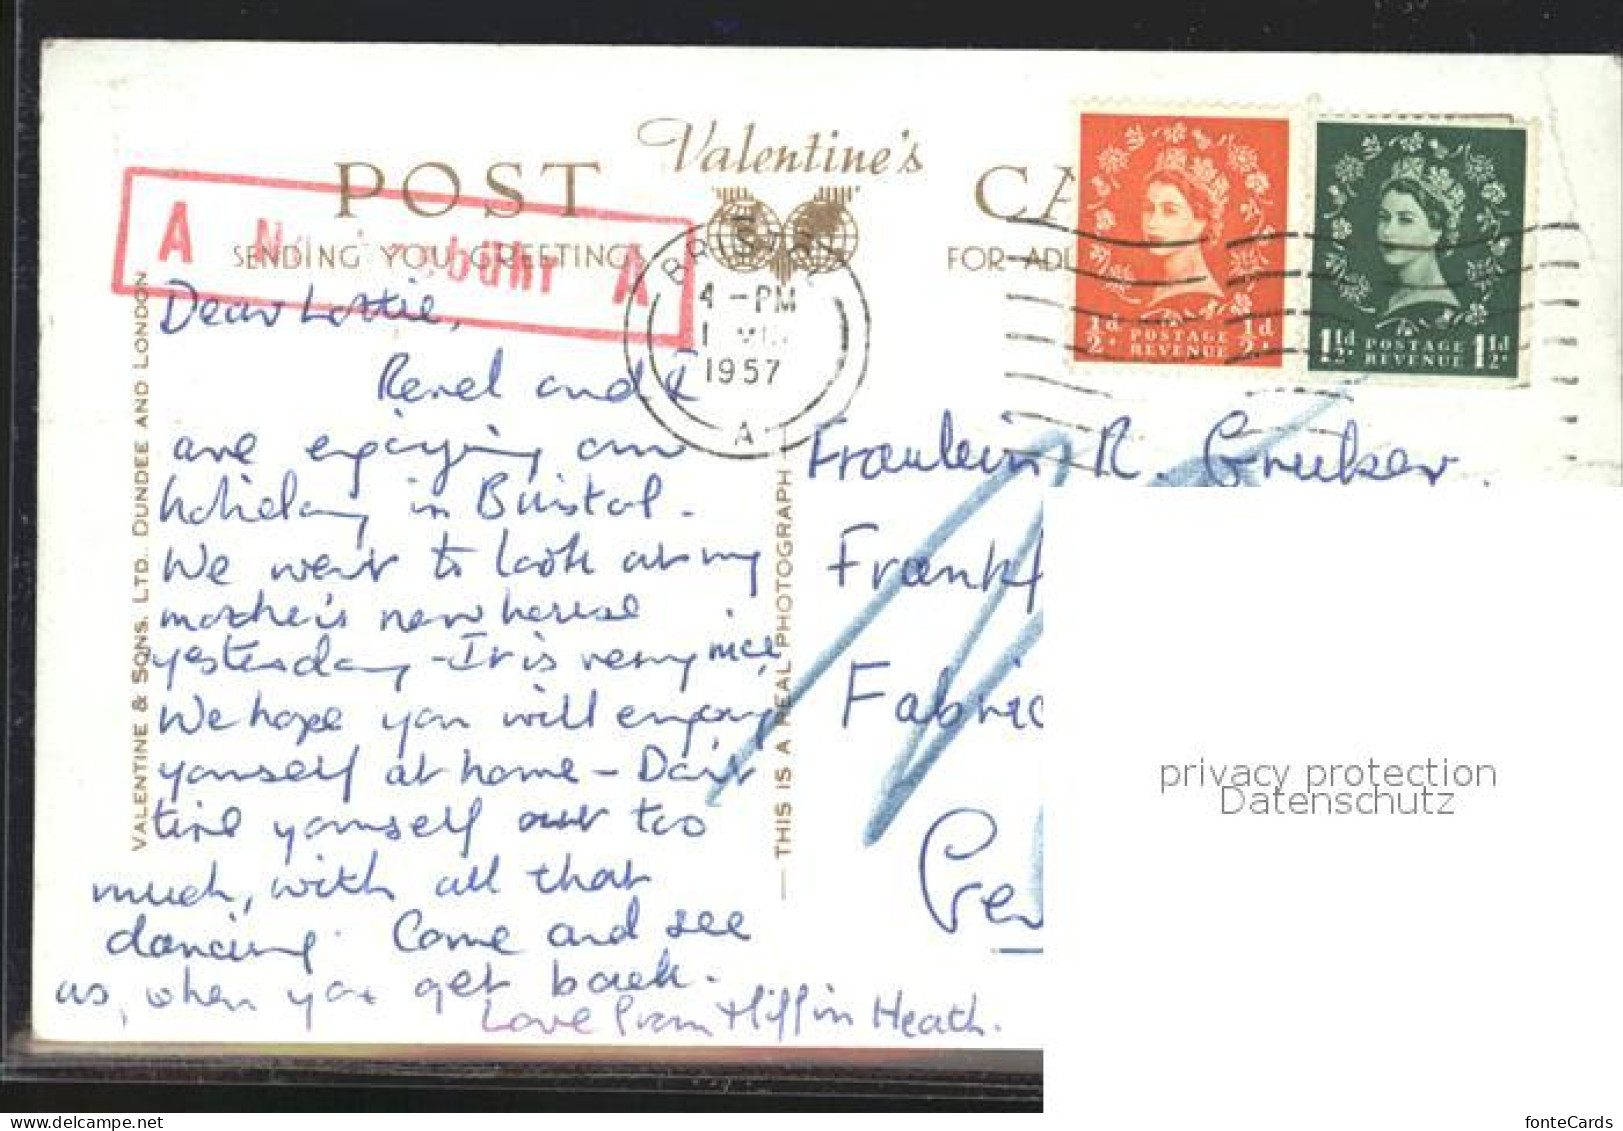 Valentine's
POST CA
SENDING YOU GREETING
FOR ADD
A Na bühr A
BRISTOL
4 - PM
1
1957
A
½d ½d
POSTAGE
REVENUE
1½d 1½d
POSTAGE
REVENUE
VALENTINE & SONS, LTD., DUNDEE AND LONDON
THIS IS A REAL PHOTOGRAPH
Dear Lottie,
and I
are enjoying our
holiday in Bristol.
We went to look at my
mother's new house
yesterday - It is very nice
We hope you will enjoy
yourself at home - Don't
tire yourself out too
much, with all that
dancing. Come and see
us, when you get back.
Love from Heath.
Fraulein R.
Frankf
Fabric
Ger
privacy protection
Datenschutz
fonteCards
Delcampe.net